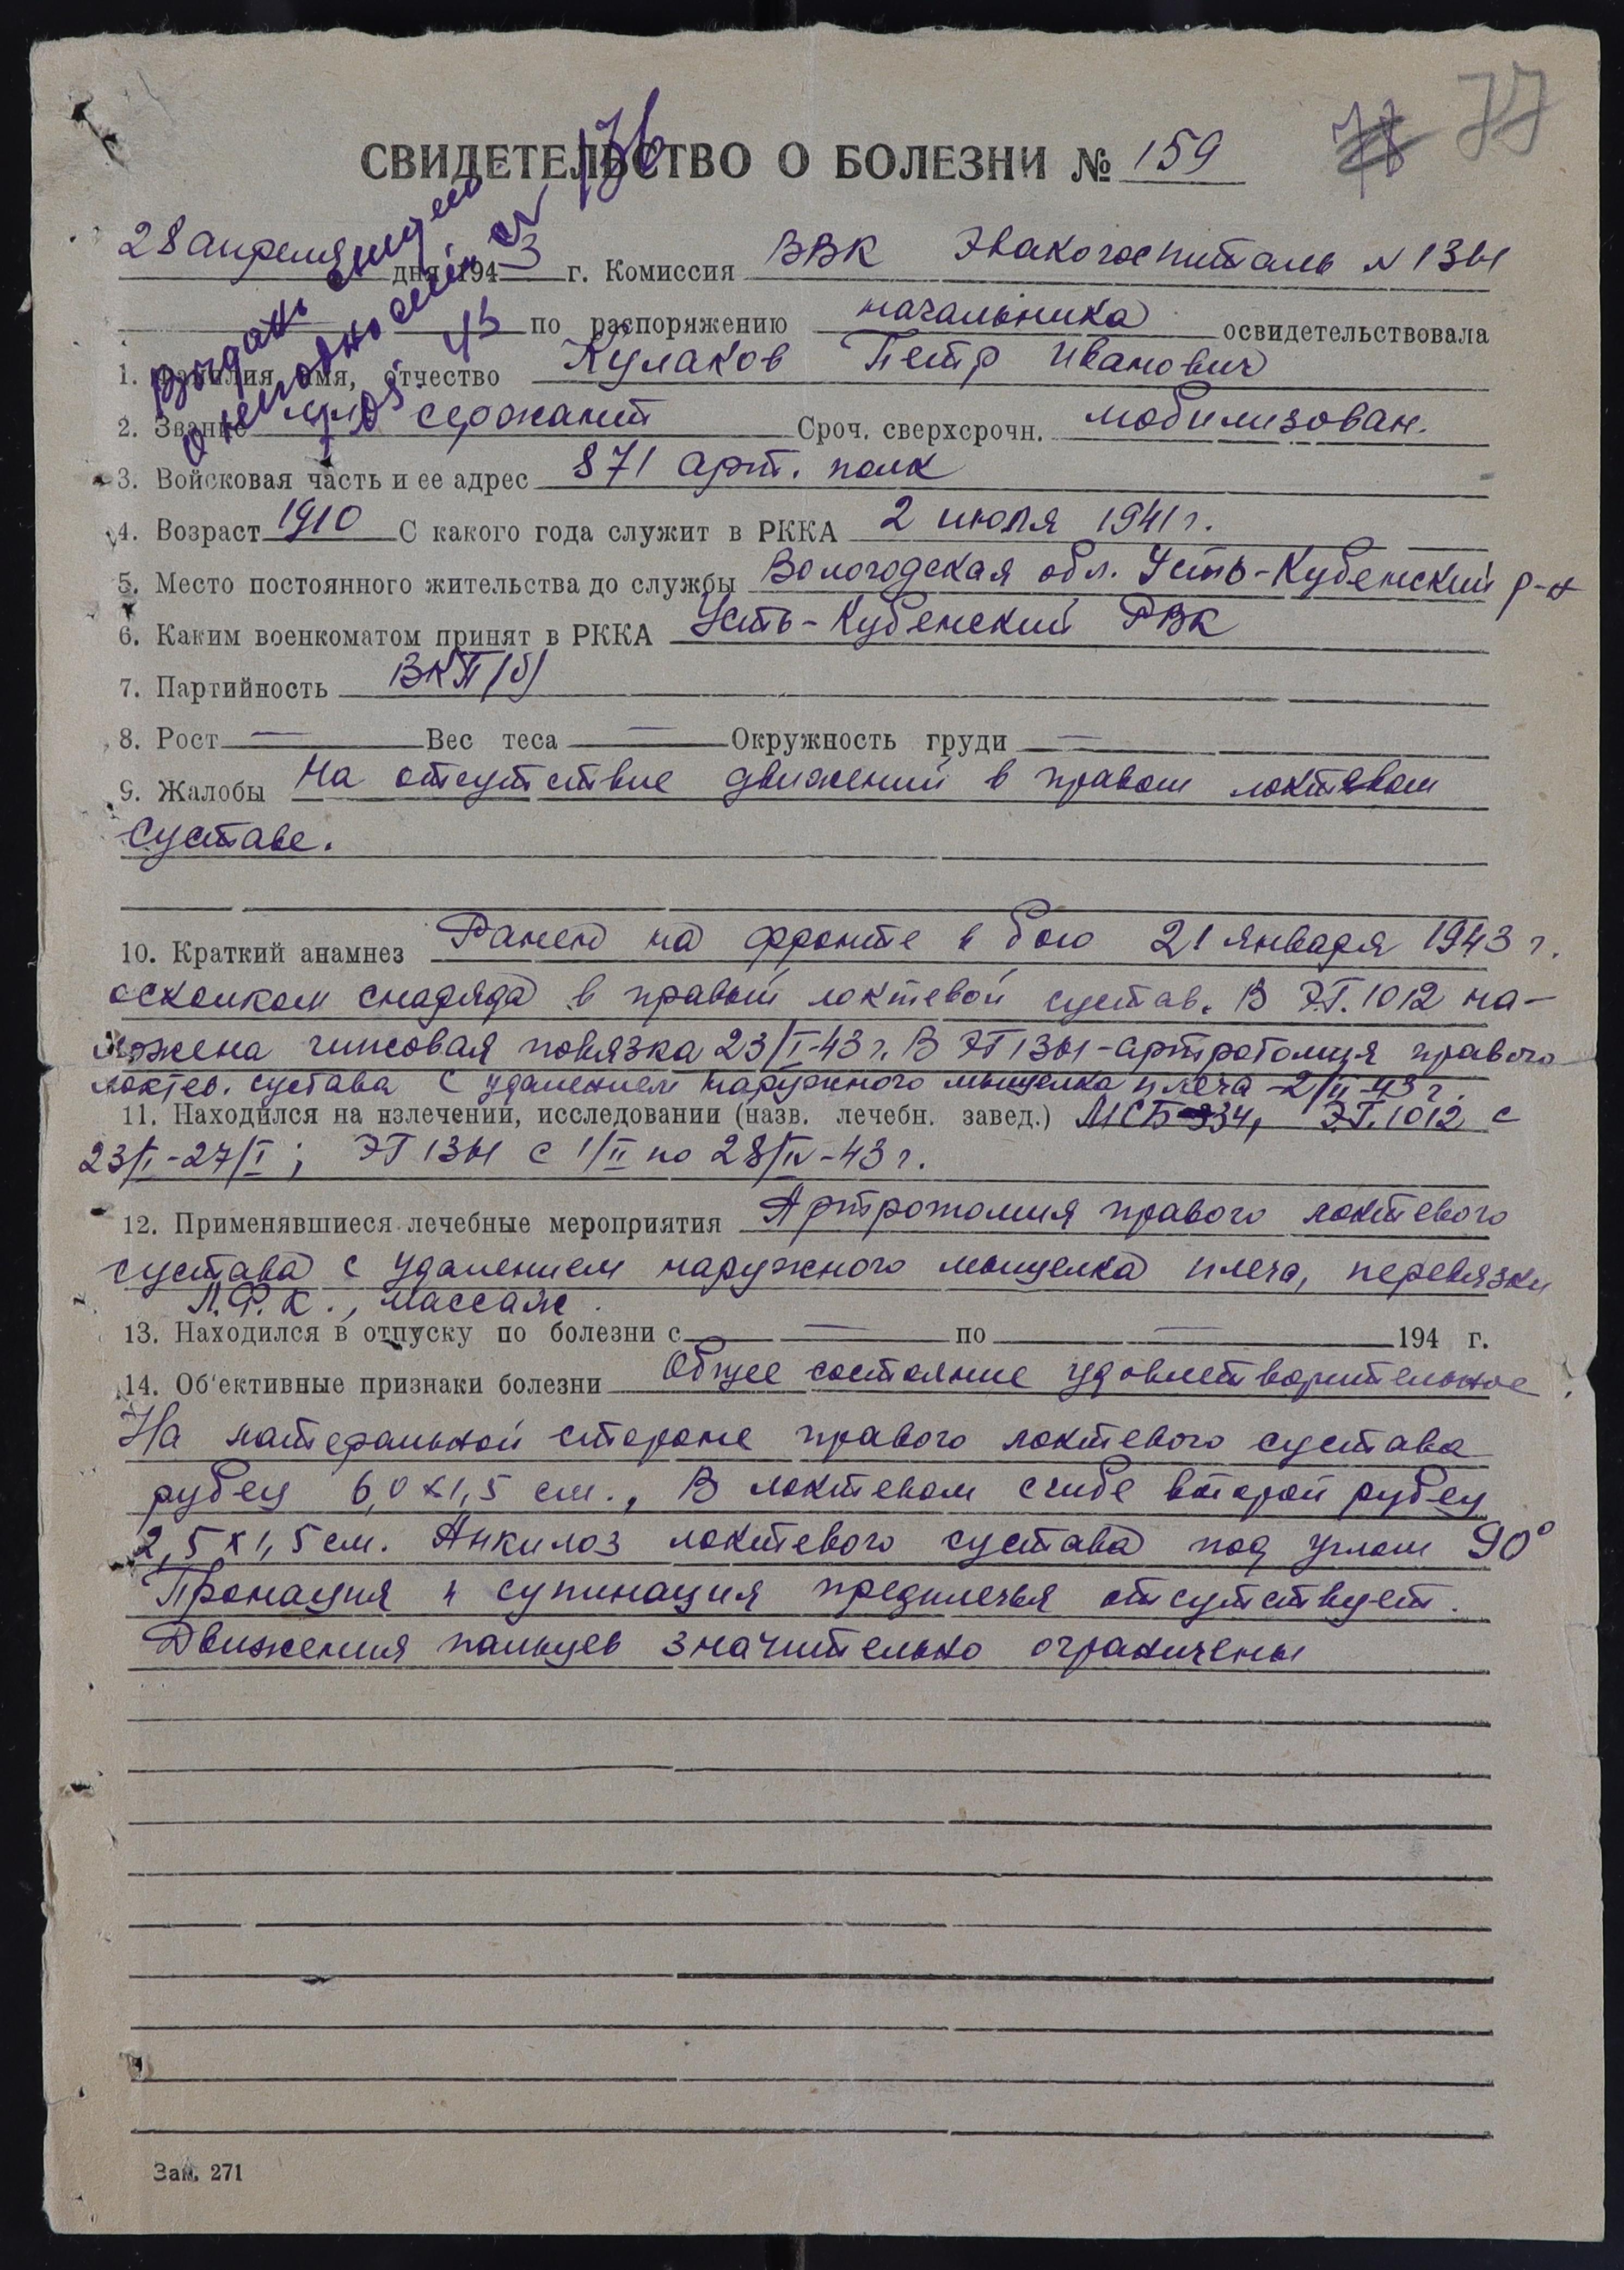 78 77
СВИДЕТЕЛЬСТВО О БОЛЕЗНИ № 159
28 апреля дня 1943 г. Комиссия ВВК Эвакогоспиталь N 1341
по распоряжению начальника освидетельствовала
1. Фамилия, имя, отчество Кулаков Петр Иванович
2. Звание мл. сержант Сроч. сверхсрочн. мобилизован.
3. Войсковая часть и ее адрес 871 арт. полк
4. Возраст 1910 С какого года служит в РККА 2 июля 1941 г.
5. Место постоянного жительства до службы Вологодская обл. Усть-Кубенский р-н
6. Каким военкоматом принят в РККА Усть-Кубенский РВК
7. Партийность ВКП(б)
8. Рост — Вес теса — Окружность груди —
9. Жалобы На отсутствие движений в правом локтевом
суставе.
10. Краткий анамнез Ранен на фронте в бою 21 января 1943 г.
осколком снаряда в правый локтевой сустав. В Э.Г. 1012 на-
ложена гипсовая повязка 23/I-43 г. В ЭГ 1341 - артротомия правого
локтев. сустава с удалением наружного мыщелка плеча - 2/II-43 г.
11. Находился на излечении, исследовании (назв. лечебн. завед.) МСБ-334, Э.Г. 1012 с
23/I-27/I; ЭГ 1341 с 1/II по 28/IV-43 г.
12. Применявшиеся лечебные мероприятия Артротомия правого локтевого
сустава с удалением наружного мыщелка плеча, перевязки
Л.Ф.К., массаж.
13. Находился в отпуску по болезни с — по — 194 г.
14. Об'ективные признаки болезни Общее состояние удовлетворительное.
На латеральной стороне правого локтевого сустава
рубец 6,0 х 1,5 см., В локтевом сгибе второй рубец
2,5 х 1,5 см. Анкилоз локтевого сустава под углом 90°
Пронация и супинация предплечья отсутствует.
Движения пальцев значительно ограничены
Зак. 271